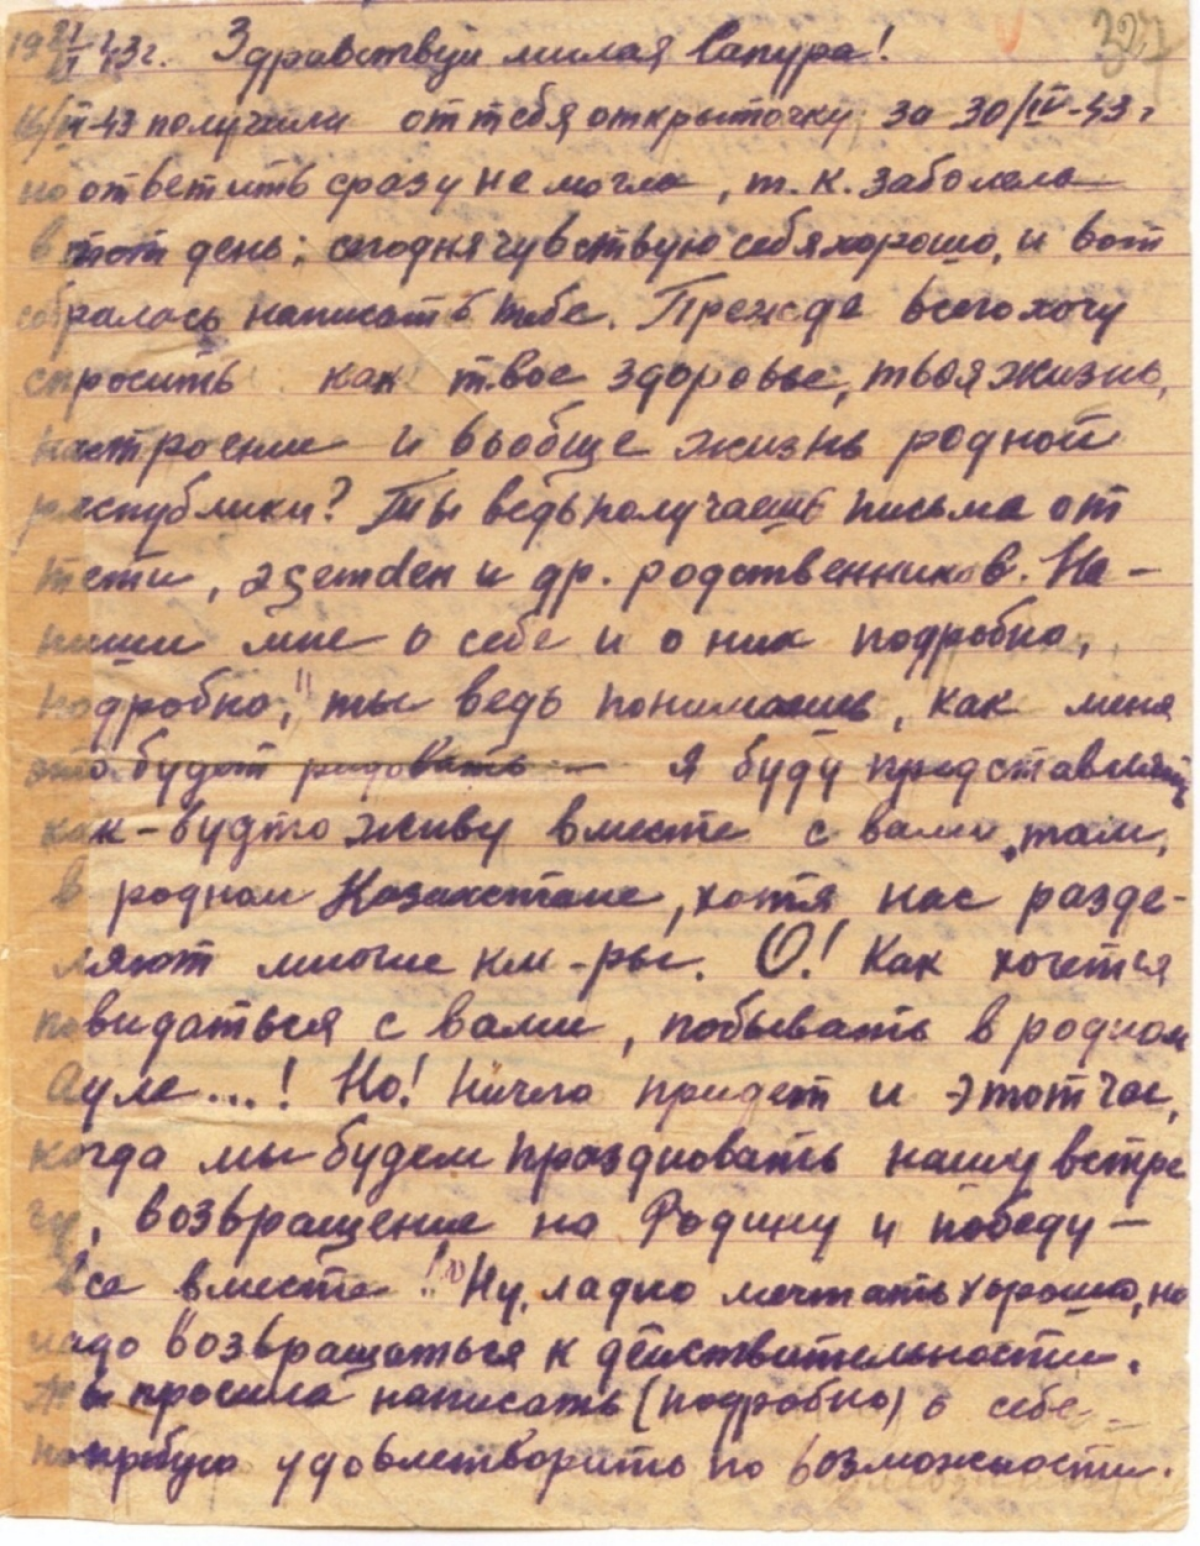 19 21/VI 43 г. Здравствуй милая Сапура!
16/VI-43 получила от тебя открыточку за 30/IV-43 г
но ответить сразу не могла, т. к. заболела
в тот день; сегодня чувствую себя хорошо, и вот
собралась написать тебе. Прежде всего хочу
спросить как твое здоровье, твоя жизнь,
настроение и вообще жизнь родной
республики? Ты ведь получаешь письма от
тети, и др. родственников. На-
пиши мне о себе и о них подробно,
подробно, ты ведь понимаешь, как меня
это будет радовать — я буду представлять
как-будто живу вместе с вами, там,
в родном Казахстане, хотя нас разде-
ляют многие км-ры. О! Как хочется
повидаться с вами, побывать в родном
Ауле...! Но! Ничего придет и этот час,
когда мы будем праздновать нашу встре
чу, возвращение на Родину и победу —
все вместе! Ну, ладно мечтать хорошо, но
надо возвращаться к действительности.
Ты просила написать (подробно) о себе —
попробую удовлетворить по возможности.
327